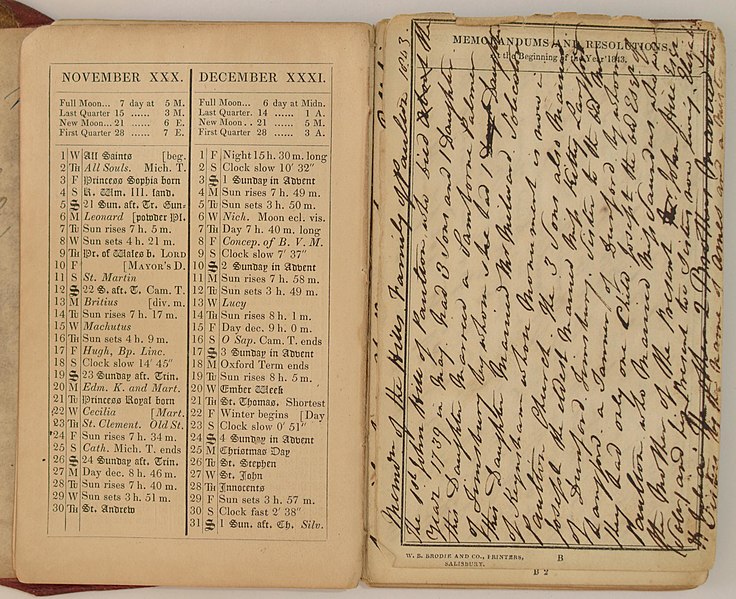 NOVEMBER XXX.
Full Moon... 7 day at 5 M.
Last Quarter 15 ...... 3 M.
New Moon... 21 ...... 6 E.
First Quarter 28 ...... 7 E.
1 W All Saints [beg.
2 Th All Souls. Mich. T.
3 F Princess Sophia born
4 S K. Wm. III. land.
5 S 21 Sun. aft. Tr. Gun-
6 M Leonard [powder Pl.
7 Tu Sun rises 7 h. 5 m.
8 W Sun sets 4 h. 21 m.
9 Th Pr. of Wales b. LORD
10 F [MAYOR'S D.
11 S St. Martin
12 S 22 S. aft. T. Cam. T.
13 M Britius [div. m.
14 Tu Sun rises 7 h. 17 m.
15 W Machutus
16 Th Sun sets 4 h. 9 m.
17 F Hugh, Bp. Linc.
18 S Clock slow 14' 45"
19 S 23 Sunday aft. Trin.
20 M Edm. K. and Mart.
21 Tu Princess Royal born
22 W Cecilia [Mart.
23 Th St. Clement. Old St.
24 F Sun rises 7 h. 34 m.
25 S Cath. Mich. T. ends
26 S 24 Sunday aft. Trin.
27 M Day dec. 8 h. 46 m.
28 Tu Sun rises 7 h. 40 m.
29 W Sun sets 3 h. 51 m.
30 Th St. Andrew
DECEMBER XXXI.
Full Moon... 6 day at Midn.
Last Quarter. 14 ...... 1 A.
New Moon .. 21 ...... 5 M.
First Quarter 28 ...... 3 A.
1 F Night 15 h. 30 m. long
2 S Clock slow 10' 32"
3 S 1 Sunday in Advent
4 M Sun rises 7 h. 49 m.
5 Tu Sun sets 3 h. 50 m.
6 W Nich. Moon ecl. vis.
7 Th Day 7 h. 40 m. long
8 F Concep. of B. V. M.
9 S Clock slow 7' 37"
10 S 2 Sunday in Advent
11 M Sun rises 7 h. 58 m.
12 Tu Sun sets 3 h. 49 m.
13 W Lucy
14 Th Sun rises 8 h. 1 m.
15 F Day dec. 9 h. 0 m.
16 S O Sap. Cam. T. ends
17 S 3 Sunday in Advent
18 M Oxford Term ends
19 Tu Sun rises 8 h. 5 m.
20 W Ember Week
21 Th St. Thomas. Shortest
22 F Winter begins [Day
23 S Clock slow 0' 51"
24 S 4 Sunday in Advent
25 M Christmas Day
26 Tu St. Stephen
27 W St. John
28 Th Innocents
29 F Sun sets 3 h. 57 m.
30 S Clock fast 2' 38"
31 S 1 Sun. aft. Ch. Silv.
MEMORANDUMS AND RESOLUTIONS,
At the Beginning of the Year 1843.
of the Hills Family of Paulton 1843
The 1st John Hill of Paulton who died about the
Year 1739 in May Had 3 Sons and 1 Daughter
this Daughter Married a Samborne Palmer
of Timsbury by whom she had 1 Daughter
this Daughter Married Mr Solicitor
of Keynsham whose Monument is now in
Paulton Church The 3 Sons also Married
Joseph the eldest Married Miss Daughter
of Timsbury, Sister to the old Mr
a of by whom
they had only one Child Joseph the old Esqr of
Paulton who Married Miss Sanders
the Mother of the Present Hill Esqr
and his two Sisters are living
2 Brother Married
W. B. BRODIE AND CO., PRINTERS,
SALISBURY.
B
B 2